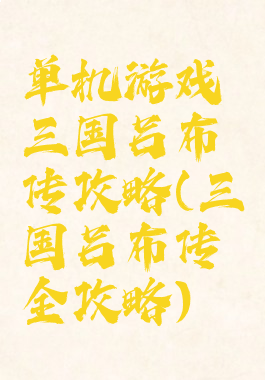 单机游戏
三国吕布
传攻略(三
国吕布传
全攻略)